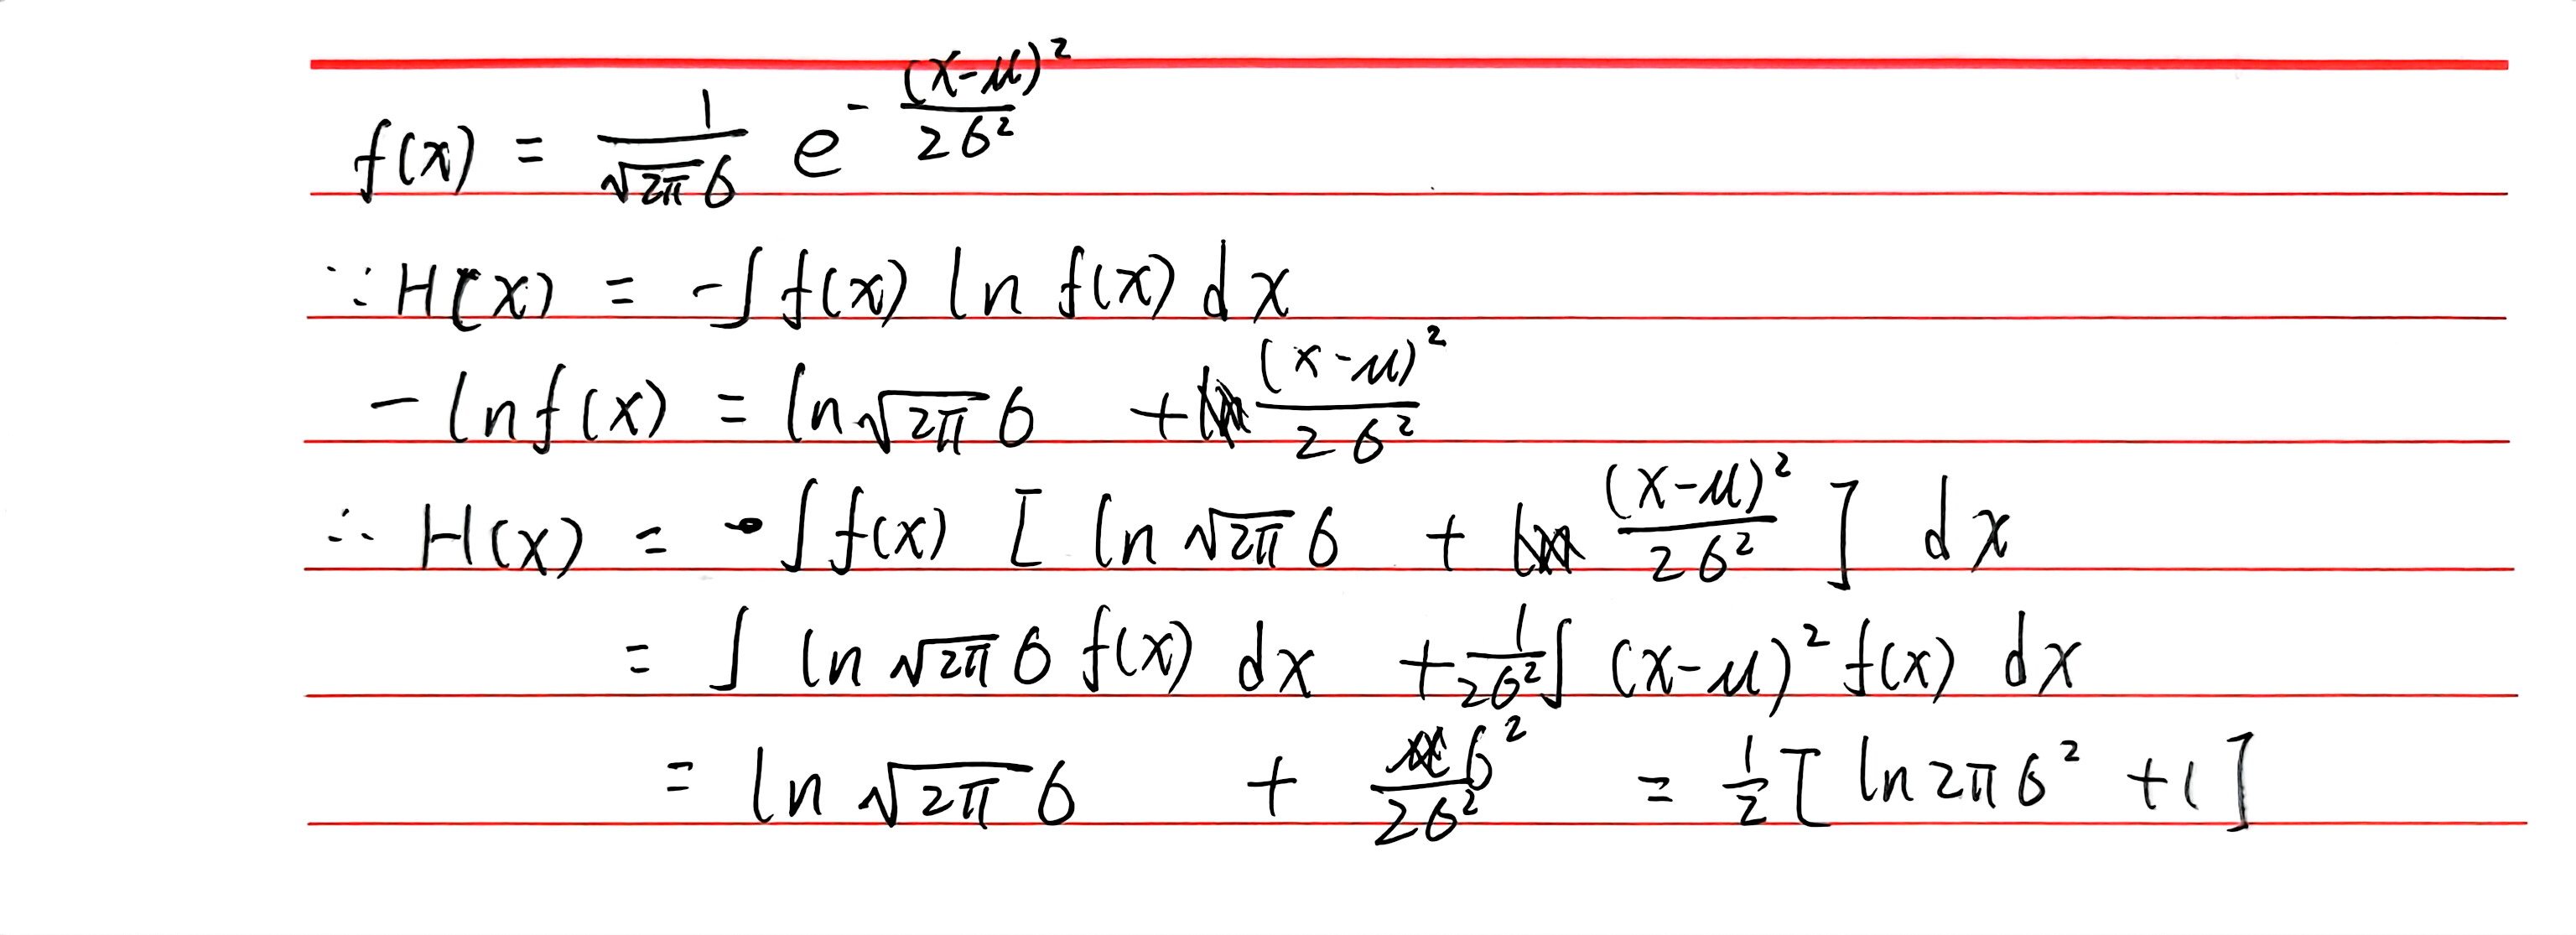 f(x) = \frac{1}{\sqrt{2π}σ} e^{-\frac{(x-μ)^2}{2σ^2}}
∵ H(x) = -∫ f(x) ln f(x) dx
- ln f(x) = ln \sqrt{2π}σ + \frac{(x-μ)^2}{2σ^2}
∴ H(x) = ∫ f(x) [ ln \sqrt{2π}σ + \frac{(x-μ)^2}{2σ^2} ] dx
= ∫ ln \sqrt{2π}σ f(x) dx + \frac{1}{2σ^2} ∫ (x-μ)^2 f(x) dx
= ln \sqrt{2π}σ + \frac{σ^2}{2σ^2} = \frac{1}{2} [ ln 2πσ^2 + 1 ]